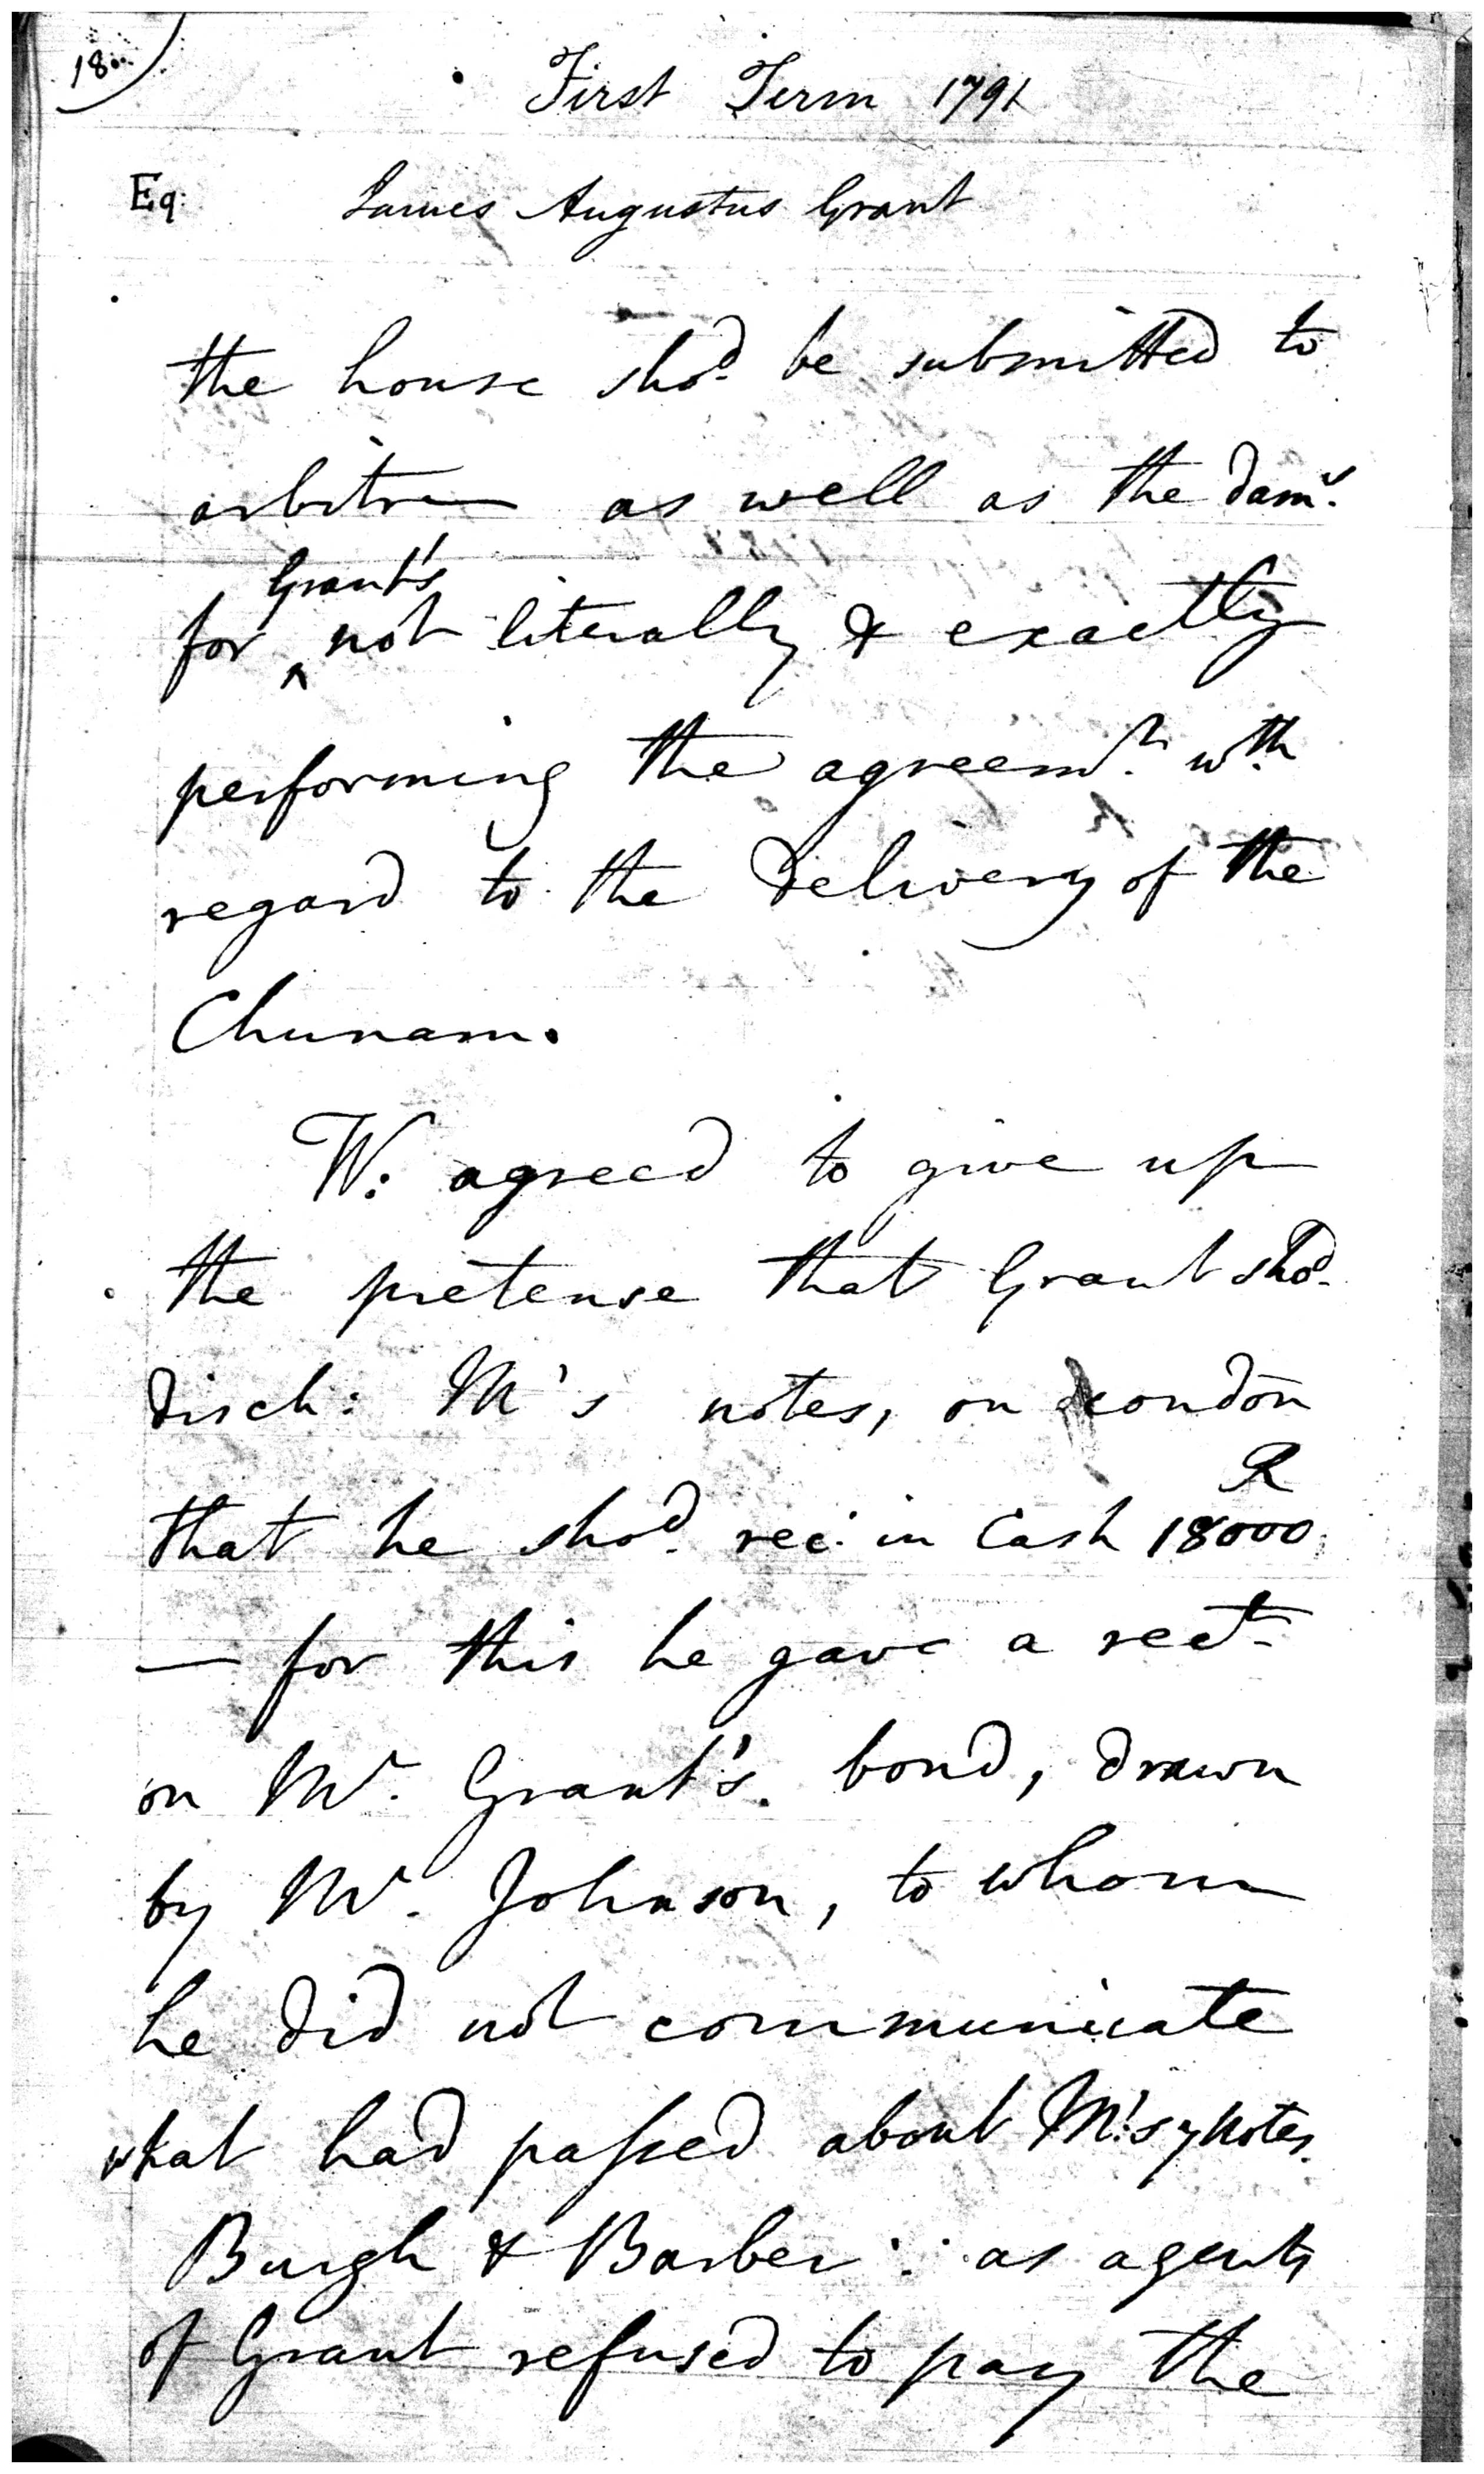 18
First Term 1791
Eq: James Augustus Grant
the house shod. be submitted to
arbitrn as well as the dams.
Grant's
for ^ not literally & exactly
performing the agreemt. wth
regard to the delivery of the
Chunam.
W: agreed to give up
the pretense that Grant shod.
disch: M's notes, on condon
R
that he shod. rec: in Cash 18000
— for this he gave a rect.
on Mr. Grant's bond, drawn
by Mr. Johnson, to whom
he did not communicate
what had passed about M's notes.
Burgh & Barber : as agents
of Grant refused to pay the